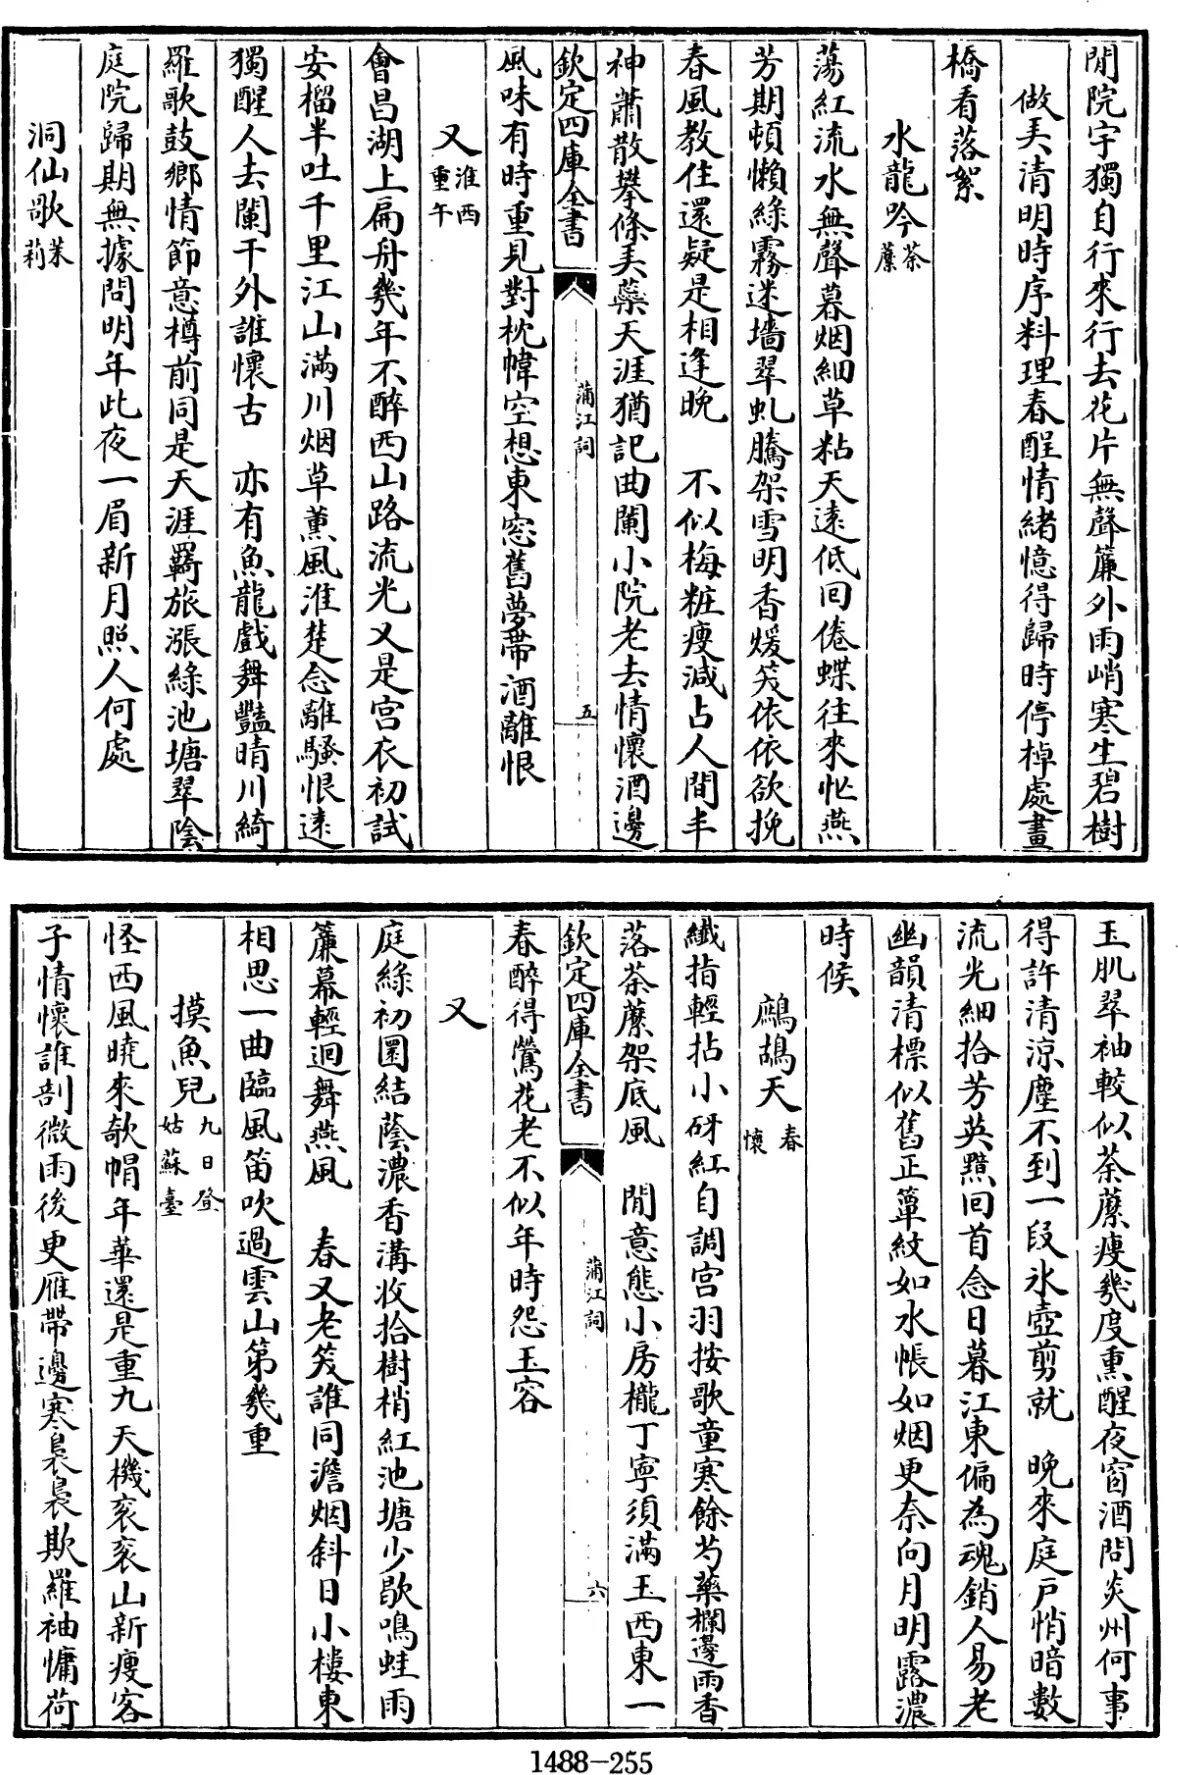 閒院宇獨自行來行去花片無聲簾外雨峭寒生碧樹
做美清明時序料理春酲情緒憶得歸時停棹處畫
橋看落絮
水龍吟荼蘼
蕩紅流水無聲暮烟細草粘天遠低回倦蝶往來忙燕
芳期頓懶綠霧迷墻翠虬騰架雪明香煖笑依依欲挽
春風教住還疑是相逢晚　不似梅粧瘦減占人間丰
神蕭散攀條弄藥天涯猶記曲闌小院老去情懷酒邊
欽定四庫全書　蒲江詞　五
風味有時重見對枕幃空想東窓舊夢帶酒離恨
又淮西重午
會昌湖上扁舟幾年不醉西山路流光又是宮衣初試
安榴半吐千里江山滿川烟草薰風淮楚念離騷恨遠
獨醒人去闌干外誰懷古　亦有魚龍戲舞豔晴川綺
羅歌鼓鄉情節意樽前同是天涯羇旅漲綠池塘翠陰
庭院歸期無據問明年此夜一眉新月照人何處
洞仙歌茉莉
玉肌翠袖較似荼蘼瘦幾度熏醒夜窗酒問炎州何事
得許清涼塵不到一段氷壺剪就　晚來庭户悄暗數
流光細拾芳英黯回首念日暮江東偏為魂銷人易老
幽韻清標似舊正簟紋如水帳如烟更奈向月明露濃
時候
鷓鴣天春懷
纎指輕拈小砑紅自調宫羽按歌童寒餘芍藥欄邊雨香
落荼蘼架底風　閒意態小房櫳丁寧須滿玉西東一
欽定四庫全書　蒲江詞　六
春醉得鶯花老不似年時怨玉容
又
庭綠初圎結蔭濃香溝收拾樹梢紅池塘少歇鳴蛙雨
簾幕輕迴舞燕風　春又老笑誰同澹烟斜日小樓東
相思一曲臨風笛吹過雲山第幾重
摸魚兒九日登姑蘇臺
怪西風曉來欹帽年華還是重九天機衮衮山新瘦客
子情懷誰剖微雨後更雁帶邊寒裊裊欺羅袖慵荷
1488-255